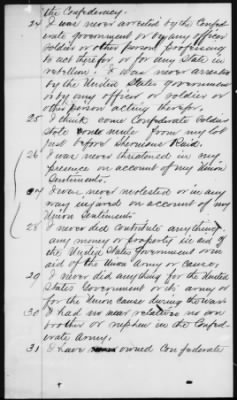 the Confederacy.
24 I was never arrested by the Confed-
erate government or by any officer
soldier or other person professing
to act therefor, or for any State in
rebellion. I was never arrested
by the United States government
or by any officer or soldier or
other person acting therefor.
25 I think some Confederate Soldiers
Stole one mule from my lot
just before Shermans Raid.
26 I was never threatened in my
presence on account of my Union
Sentiments.
27 I was never molested or in any
way injured on account of my
Union Sentiments
28 I never did contribute anything,
any money or property in aid of
the United States Government or in
aid of the Union Army or cause,
29 I never did anything for the United
States Government or its army or
for the Union Cause during the war
30 I had no near relative no own
brother or nephew in the Confed-
erate Army.
31 I have owned Confederate